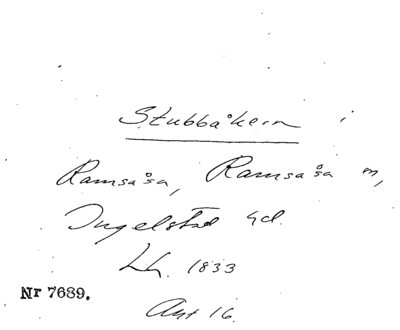 Stubbåkern i
Ramsåsa, Ramsåsa sn,
Ingelstad hd.
Lh. 1833
Nr 7689.
Akt 16.